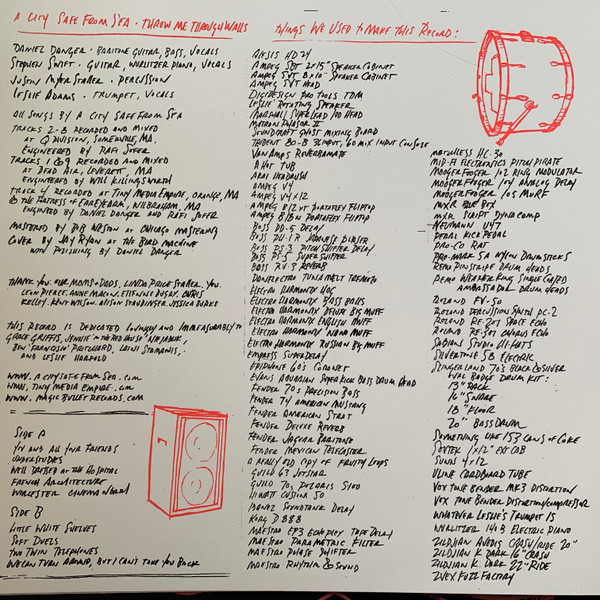 A City Safe From Sea · Throw Me Through Walls
Daniel Danger · Baritone Guitar, Bass, Vocals
Stephen Swift · Guitar, Wurlitzer Piano, Vocals
Justin Starer · Percussion
Leslie Adams · Trumpet, Vocals
All songs by A City Safe From Sea
Tracks 2-8 recorded and mixed
at Q Division, Somerville, MA,
Engineered by Rafi Sofer
Tracks 1 & 9 recorded and mixed
at Dead Air, Leverett, MA
Engineered by Will Killingsworth
Track 4 recorded at Tiny Media Empire, Orange, MA
& The Fastness of Wilbraham, MA
Engineered by Daniel Danger and Rafi Sofer
Mastered by Bob Weston at Chicago Mastering
Cover by Jay Ryan at The Bird Machine
with polishing by Daniel Danger
Thank you: our Moms & Dads, Linda Price Starer, You,
Leon Pierce, Anne Macon, Etienne Dusay, Chris
Kelley, Kent Wilson, Alison Staudinger, Jessica Burke
This record is dedicated lovingly and immeasurably to
Grace Griffis, Jennie "in the Red House" Niejadlik,
Ben "Franklin" Pritchard, Laini Stamalis,
and Leslie Harold
www.acitysafefromsea.com
www.tinymediaempire.com
www.magicbulletrecords.com
Side A
You and All Your Friends
Understudies
Well Dressed at the Hospital
French Architecture
Worcester Cinematheque
Side B
Little White Shelves
Soft Duels
Two Twin Telephones
We Can Turn Around, But I Can't Take You Back
Things We Used to Make This Record:
Alesis HD24
Ampeg SBT 2x15" Speaker Cabinet
Ampeg SVT 8x10" Speaker Cabinet
Ampeg SVT Head
Digidesign Pro Tools TDM
Leslie Rotating Speaker
Marshall Superlead 100 Head
Mutron Phasor II
Soundcraft Ghost Mixing Board
Trident 80-B 36 Input, 60 Mix Input Console
Van Amps Reverbamate
A Hot Tub
Arai Headbash
Ampeg V4
Ampeg V4x12
Ampeg B12XT Portaflex Fliptop
Ampeg B18N Portaflex Fliptop
Boss DD-5 Delay
Boss DD-1R
Boss PS-3 Pitch Shifter Delay
Boss PS-5 Super Shifter
Boss RV-3 Reverb
Danelectro Tunamelt Tremolo
Electro Harmonix HOG
Electro Harmonix Bass Balls
Electro Harmonix Deluxe Big Muff
Electro Harmonix English Muff
Electro Harmonix Nano Muff
Electro Harmonix Russian Big Muff
Empress Superdelay
Epiphone 60's Coronet
Evans Aquarian Superkick Bass Drum Head
Fender 70's Precision Bass
Fender 74 American Mustang
Fender American Strat
Fender Deluxe Reverb
Fender Jaguar Baritone
Fender Mexican Telecaster
A really old copy of Fruity Loops
Guild 63 Jetstar
Guild 70's Polaris S100
Hiwatt Custom 50
Ibanez Soundtank Delay
Korg D888
Maestro EP3 Echoplex Tape Delay
Maestro Parametric Filter
Maestro Phase Shifter
Maestro Rhythm & Sound
Matchless HC-30
Mid-Fi Electronics Pitch Pirate
Moogerfooger 102 Ring Modulator
Moogerfooger 104 Analog Delay
Moogerfooger 105 MuRF
MXR Blue Box
MXR Script Dynacomp
Neumann U47
Pearl Kick Pedal
Pro-Co Rat
Pro-Mark 5A Nylon Drumsticks
Remo Pinstripe Drum Heads
Remo Weather King Single Coated
Ambassador Drum Heads
Roland FV-50
Roland Percussion Synth PC-2
Roland RE-201 Space Echo
Roland RE-301 Chorus Echo
Sabian Studio Hi-Hats
Silvertone 58 Electric
Slingerland 70's Black Cosover
WFL Badge Drum Kit:
13" Rack
16" Snare
18" Floor
20" Bass Drum
Something like 153 Cans of Coke
Sovtek 1x12" Ext Cab
Sunn 4x12
Uline Cardboard Tube
Vox Tone Bender MK3 Distortion
Vox Tone Bender Distortion/Compressor
Whatever Leslie's Trumpet Is
Wurlitzer 140B Electric Piano
Zildjian Avedis Crash/Ride 20"
Zildjian K Dark 16" Crash
Zildjian K Dark 22" Ride
Zvex Fuzz Factory